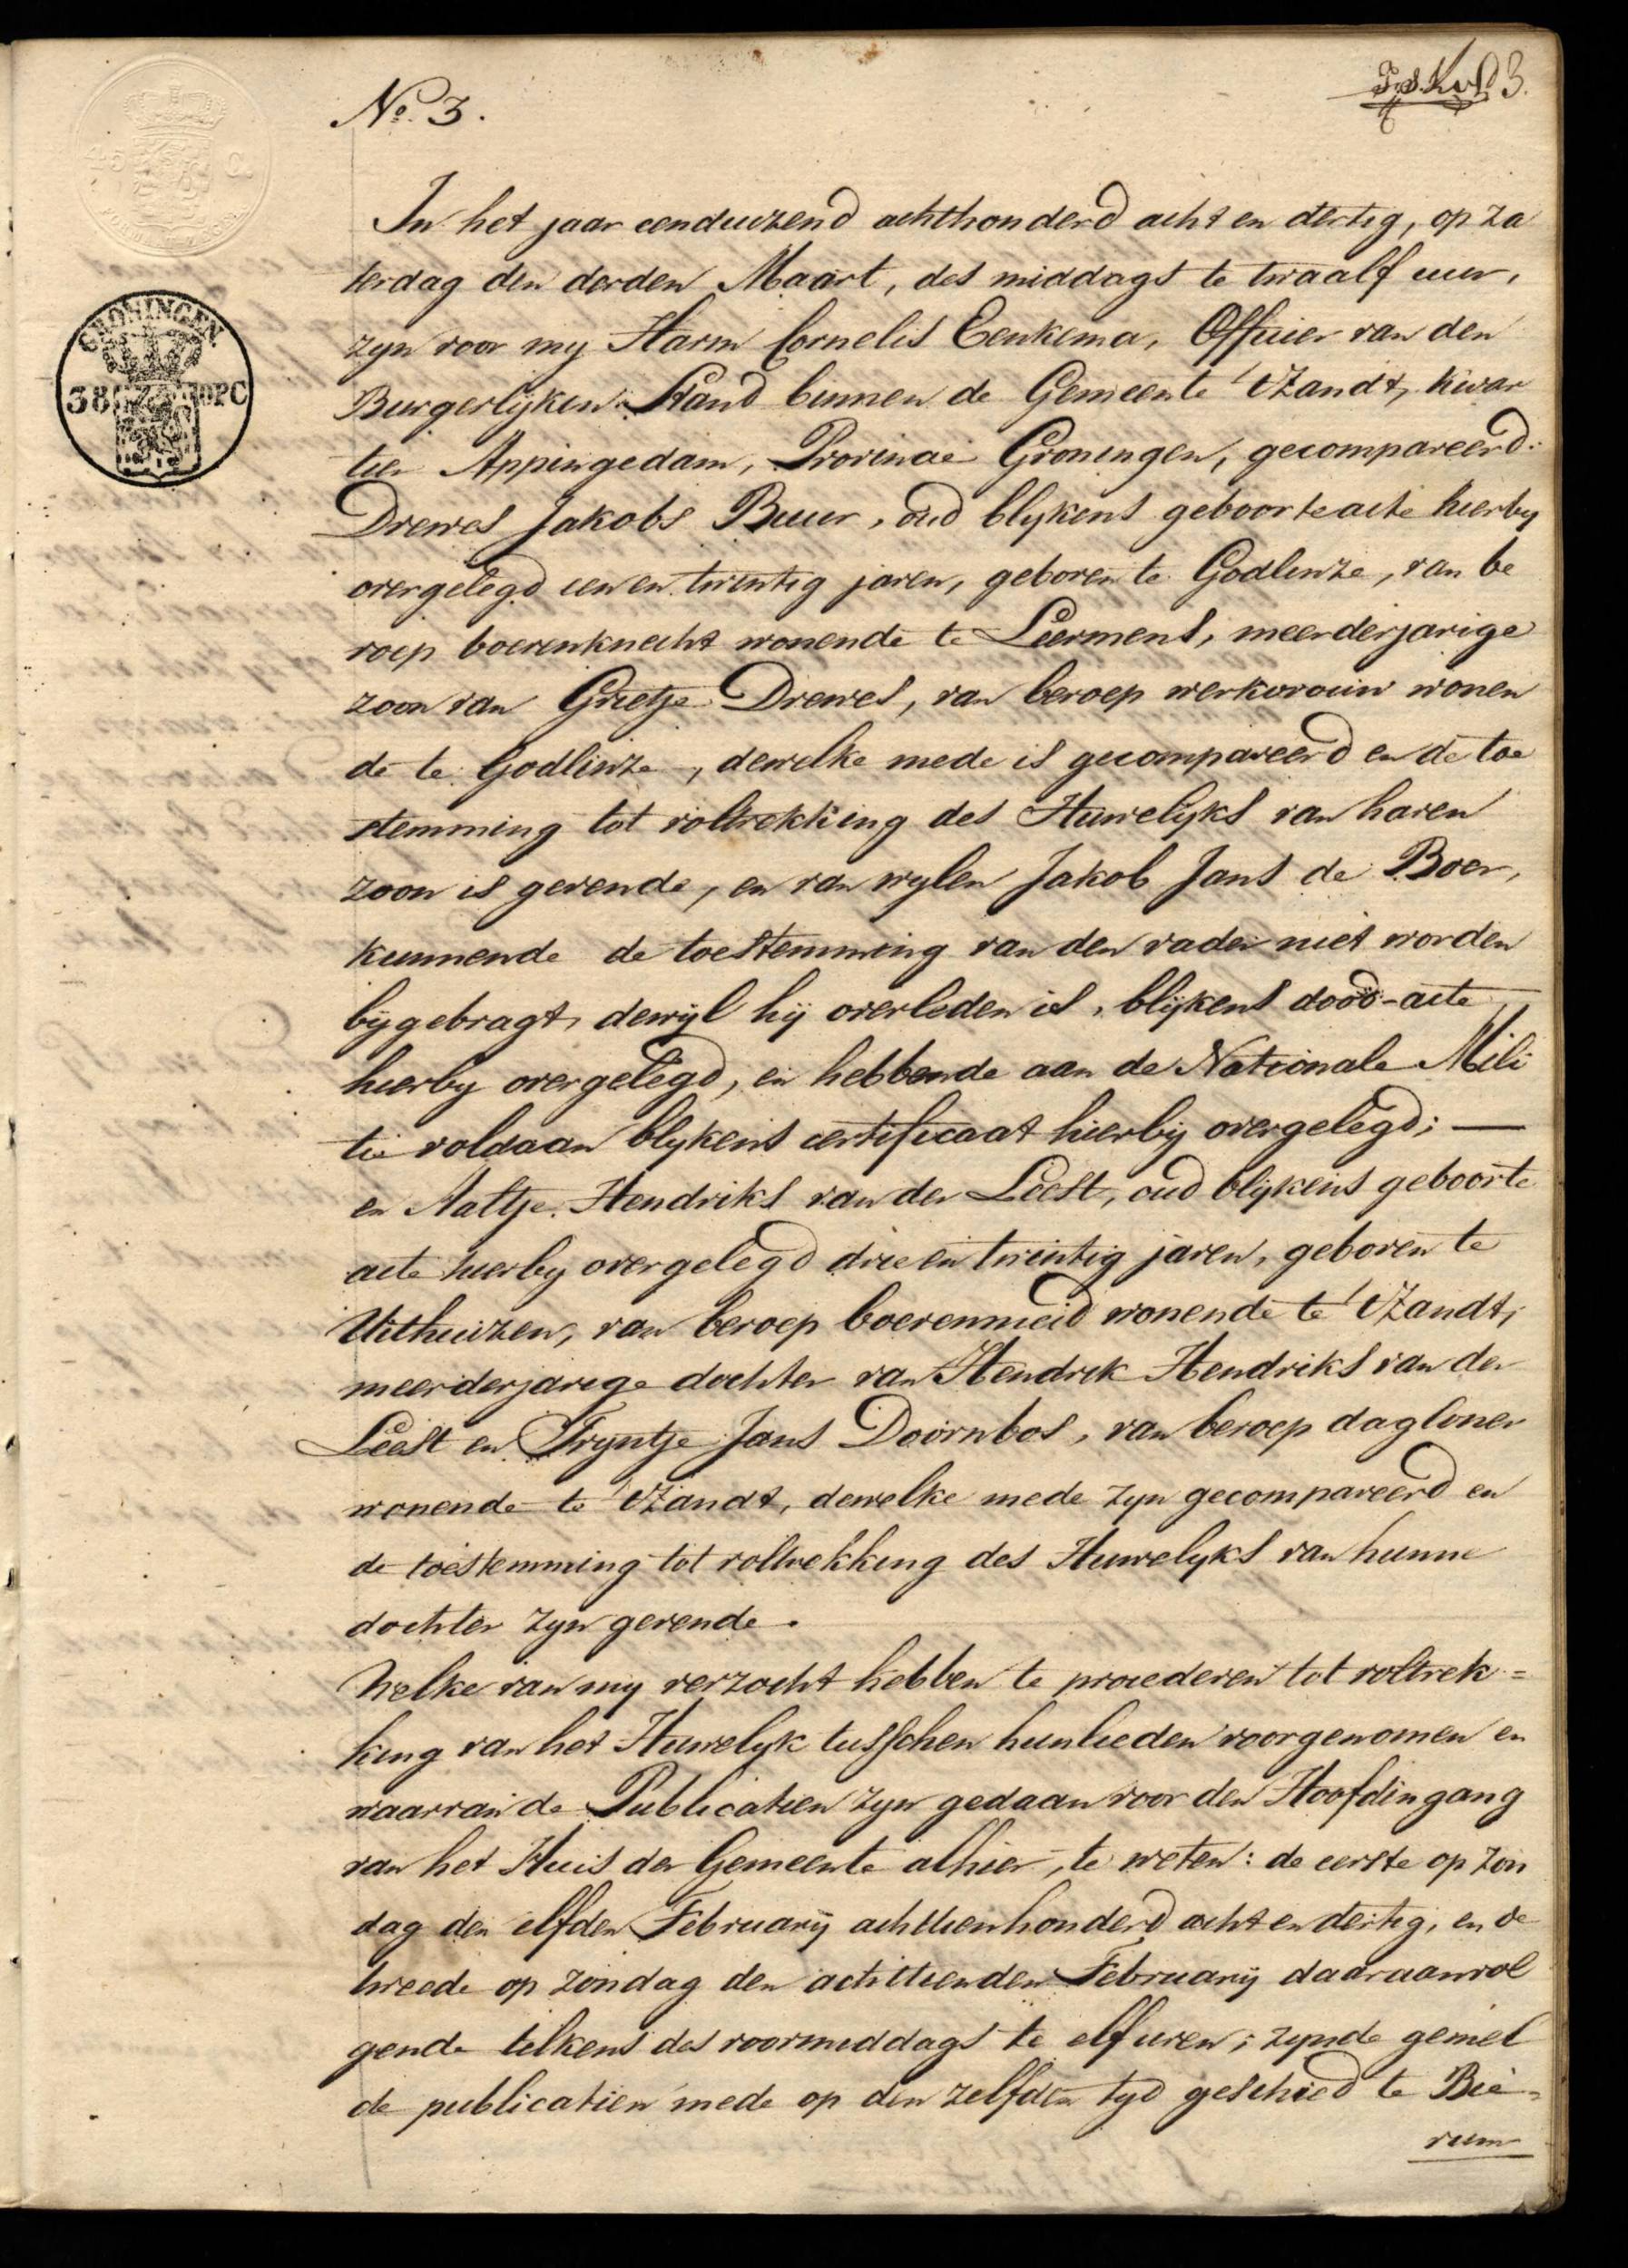 No. 3.
3.
45 C.
GRONINGEN
38 OPC
In het jaar eenduizend achthonderd acht en dertig, op Za
terdag den derden Maart, des middags te twaalf uur,
zyn voor my Harm Cornelis Eenkema, Officier van den
Burgerlyken Stand binnen de Gemeente 't Zandt, kwar
tier Appingedam, Provincie Groningen, gecompareerd:
Drewes Jakobs Buur, oud blykens geboorteacte hierby
overgelegd een en twintig jaren, geboren te Godlinze, van be
roep boerenknecht wonende te Leermens, meerderjarige
zoon van Grietje Drewes, van beroep werkvrouw wonen
de te Godlinze, dewelke mede is gecompareerd en de toe
stemming tot voltrekking des Huwelyks van haren
zoon is gevende, en van wylen Jakob Jans de Boer,
kunnende de toestemming van den vader niet worden
bygebragt, dewyl hy overleden is, blykens dood-acte
hierby overgelegd, en hebbende aan de Nationale Mili
tie voldaan blykens certificaat hierby overgelegd; —
en Aaltje Hendriks van der Leest, oud blykens geboorte
acte hierby overgelegd drie en twintig jaren, geboren te
Uithuizen, van beroep boerenmeid wonende te 't Zandt,
meerderjarige dochter van Hendrik Hendriks van der
Leest en Tryntje Jans Doornbos, van beroep dagloner
wonende te 't Zandt, dewelke mede zyn gecompareerd en
de toestemming tot voltrekking des Huwelyks van hunne
dochter zyn gevende.
Welke van my verzocht hebben te procederen tot voltrek=
king van het Huwelyk tusschen hunlieden voorgenomen en
waarvan de Publicatien zyn gedaan voor den Hoofdingang
van het Huis der Gemeente alhier, te weten: de eerste op Zon
dag den elfden February achttienhonderd acht en dertig, en de
tweede op Zondag den achttienden February daaraanvol
gende telkens des voormiddags te elf uren; zynde gemel
de publicatien mede op den zelfden tyd geschied te Bie=
rum